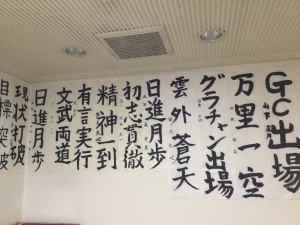 GC出場
万里一空
グラチャン出場
雲外蒼天
日進月歩
初志貫徹
精神一到
有言実行
文武両道
日進月歩
現状打破
目標突破